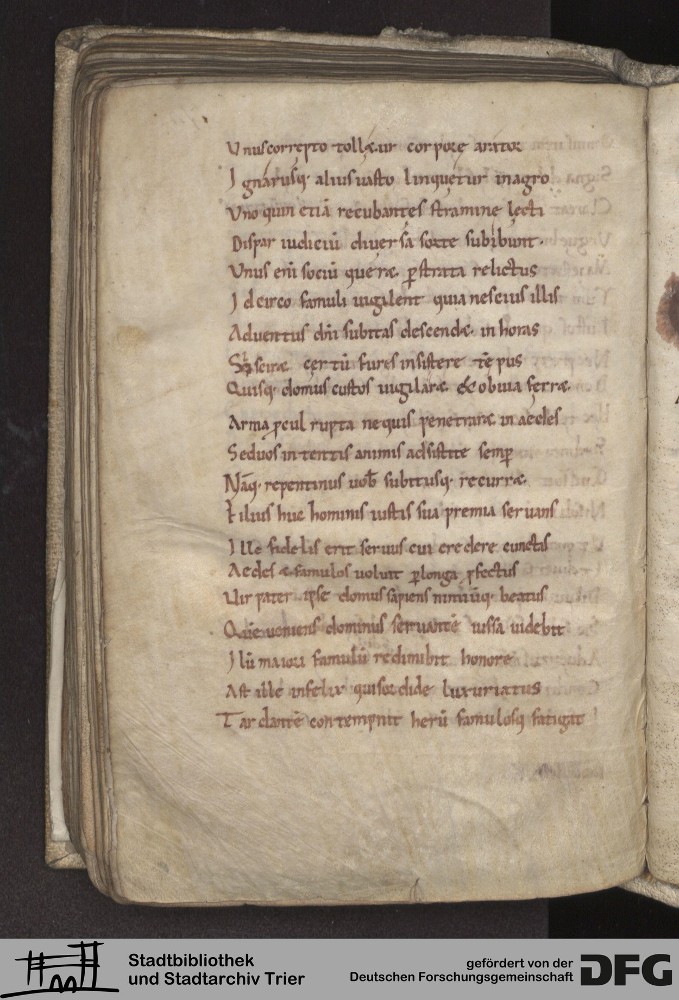 Unus correpto tollaeur corpore arator
Ignarusq; alius uasto linquetur in agro
Uno quin etiā recubantes stramine lecti
Dispar iudiciū diuersa sorte subibunt.
Unus eni sociū querae p strata relictus
Idcirco famuli uigilent quia nescius illis
Aduentus dni subitas descendae in horas
Scirae certū fures insistere tēpus
Quisq; domus custos uigilarae & obuia ferrae
Arma pcul rupta ne quis penetrarae in aedes
Sed uos intentis animis adsistite semp
Nāq; repentinus uob subitusq; recurrae
Filius huc hominis iustis sua premia seruans
Ille fidelis erit seruus cui credere cunctas
Aedes & famulos uoluit p longa pfectus
Uir pater ipse domus sapiens nimiūq; beatus
Quē ueniens dominus seruantē iussa uidebit
Illū maiori famulū redimibit honore
Ast ille infelix quisordide luxuriatus
Tardantē contempnit herū famulosq; fatigat
Stadtbibliothek
und Stadtarchiv Trier
gefördert von der
Deutschen Forschungsgemeinschaft
DFG